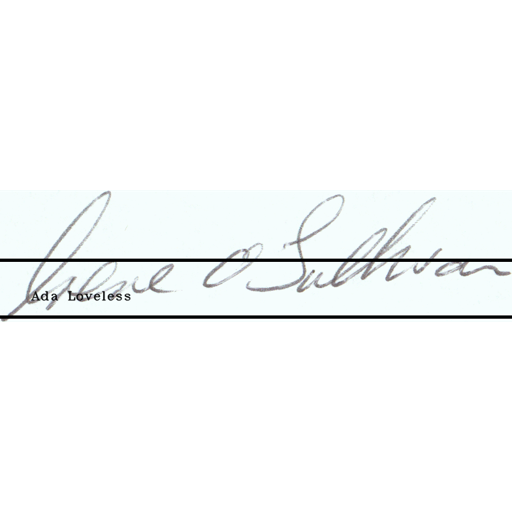 Irene O'Sullivan
Ada Loveless